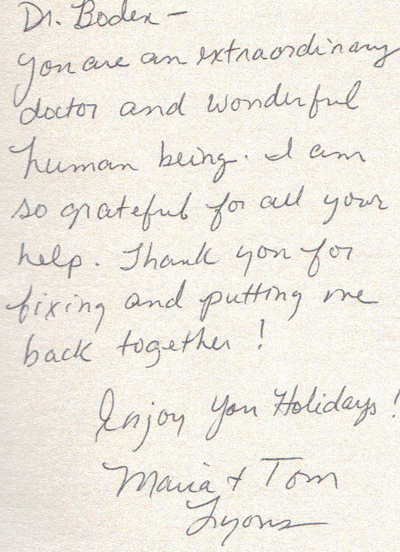 Dr. Boden —
you are an extraordinary
doctor and wonderful
human being. I am
so grateful for all your
help. Thank you for
fixing and putting me
back together!
Enjoy your Holidays!
Maria + Tom
Lyons